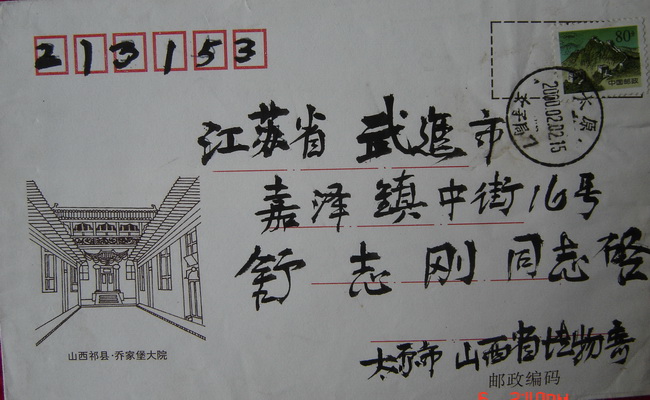 213153
80分
中国邮政
太原
2000.02.02.15
江苏省 武進市
嘉泽镇中街16号
舒志刚同志啓
山西祁县·乔家堡大院
太原市 山西省博物舘
邮政编码